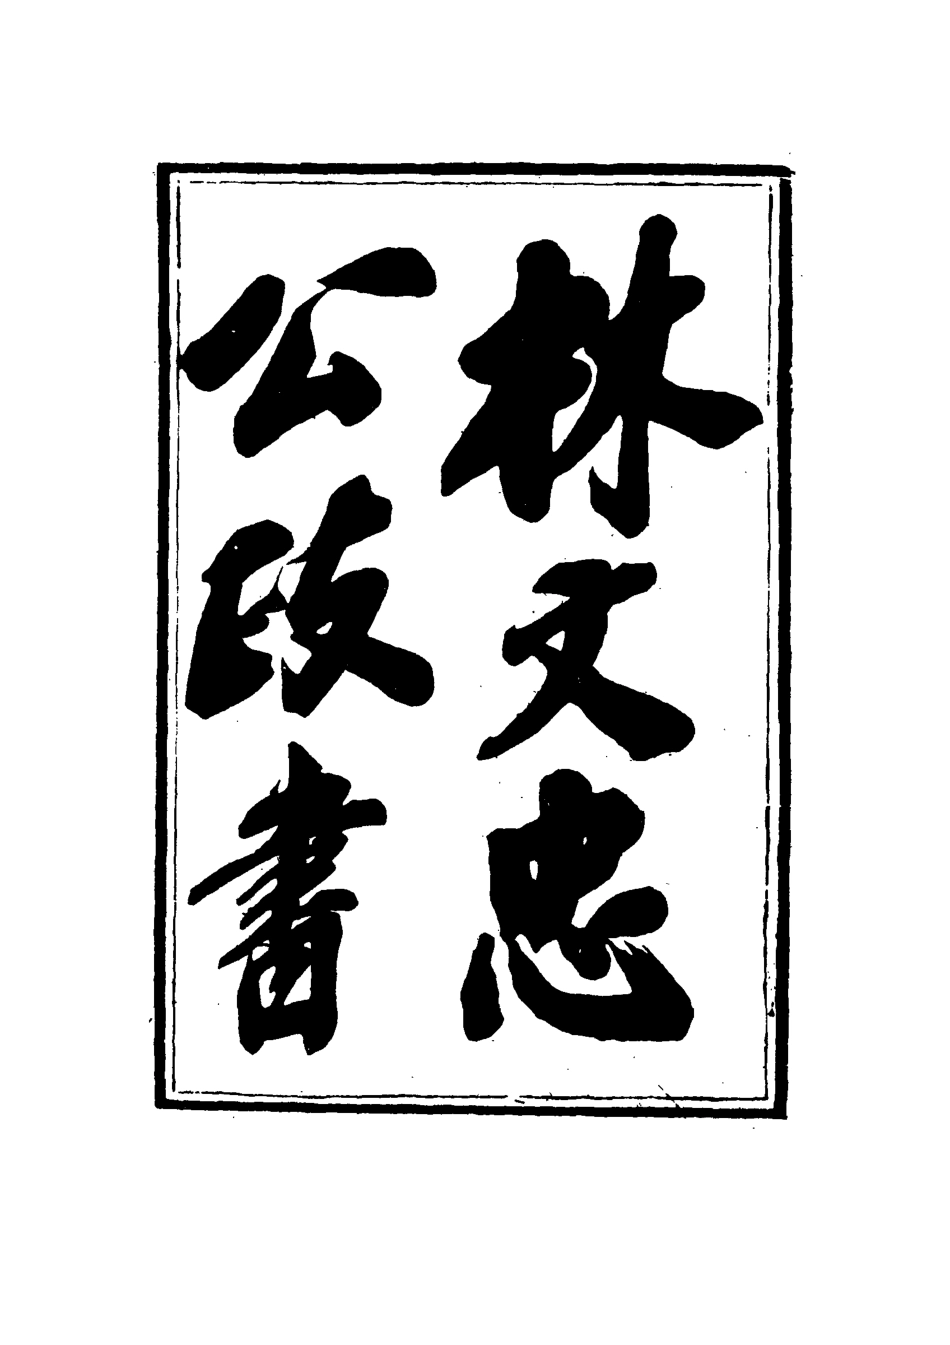 林文忠
公政書